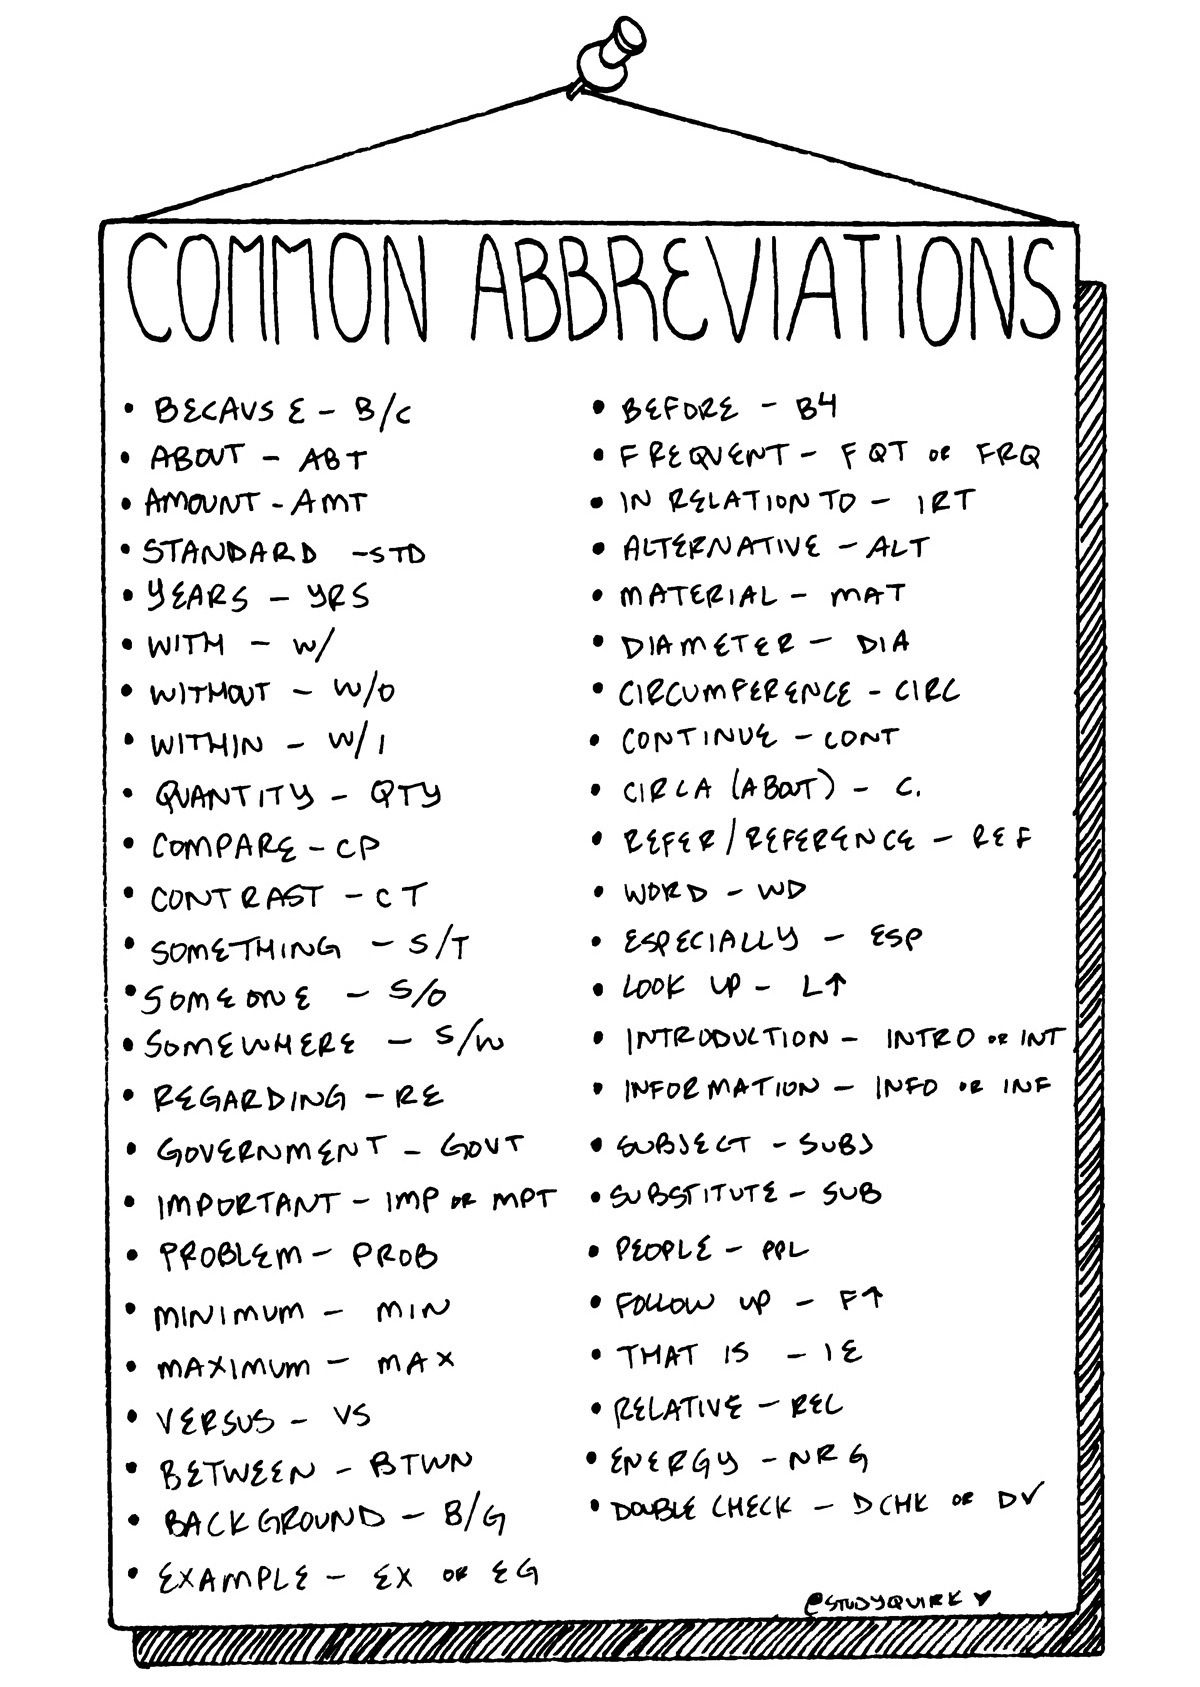 COMMON ABBREVIATIONS
• BECAUSE - B/C
• ABOUT - ABT
• AMOUNT - AMT
• STANDARD - STD
• YEARS - YRS
• WITH - W/
• WITHOUT - W/O
• WITHIN - W/I
• QUANTITY - QTY
• COMPARE - CP
• CONTRAST - CT
• SOMETHING - S/T
• SOMEONE - S/O
• SOMEWHERE - S/W
• REGARDING - RE
• GOVERNMENT - GOVT
• IMPORTANT - IMP OR MPT
• PROBLEM - PROB
• MINIMUM - MIN
• MAXIMUM - MAX
• VERSUS - VS
• BETWEEN - BTWN
• BACKGROUND - B/G
• EXAMPLE - EX OR EG
• BEFORE - B4
• FREQUENT - FQT OR FRQ
• IN RELATION TO - IRT
• ALTERNATIVE - ALT
• MATERIAL - MAT
• DIAMETER - DIA
• CIRCUMFERENCE - CIRC
• CONTINUE - CONT
• CIRCA (ABOUT) - C.
• REFER/REFERENCE - REF
• WORD - WD
• ESPECIALLY - ESP
• LOOK UP - L↑
• INTRODUCTION - INTRO OR INT
• INFORMATION - INFO OR INF
• SUBJECT - SUBJ
• SUBSTITUTE - SUB
• PEOPLE - PPL
• FOLLOW UP - F↑
• THAT IS - IE
• RELATIVE - REL
• ENERGY - NRG
• DOUBLE CHECK - DCHK OR D✓
@STUDYQUIRK ♥